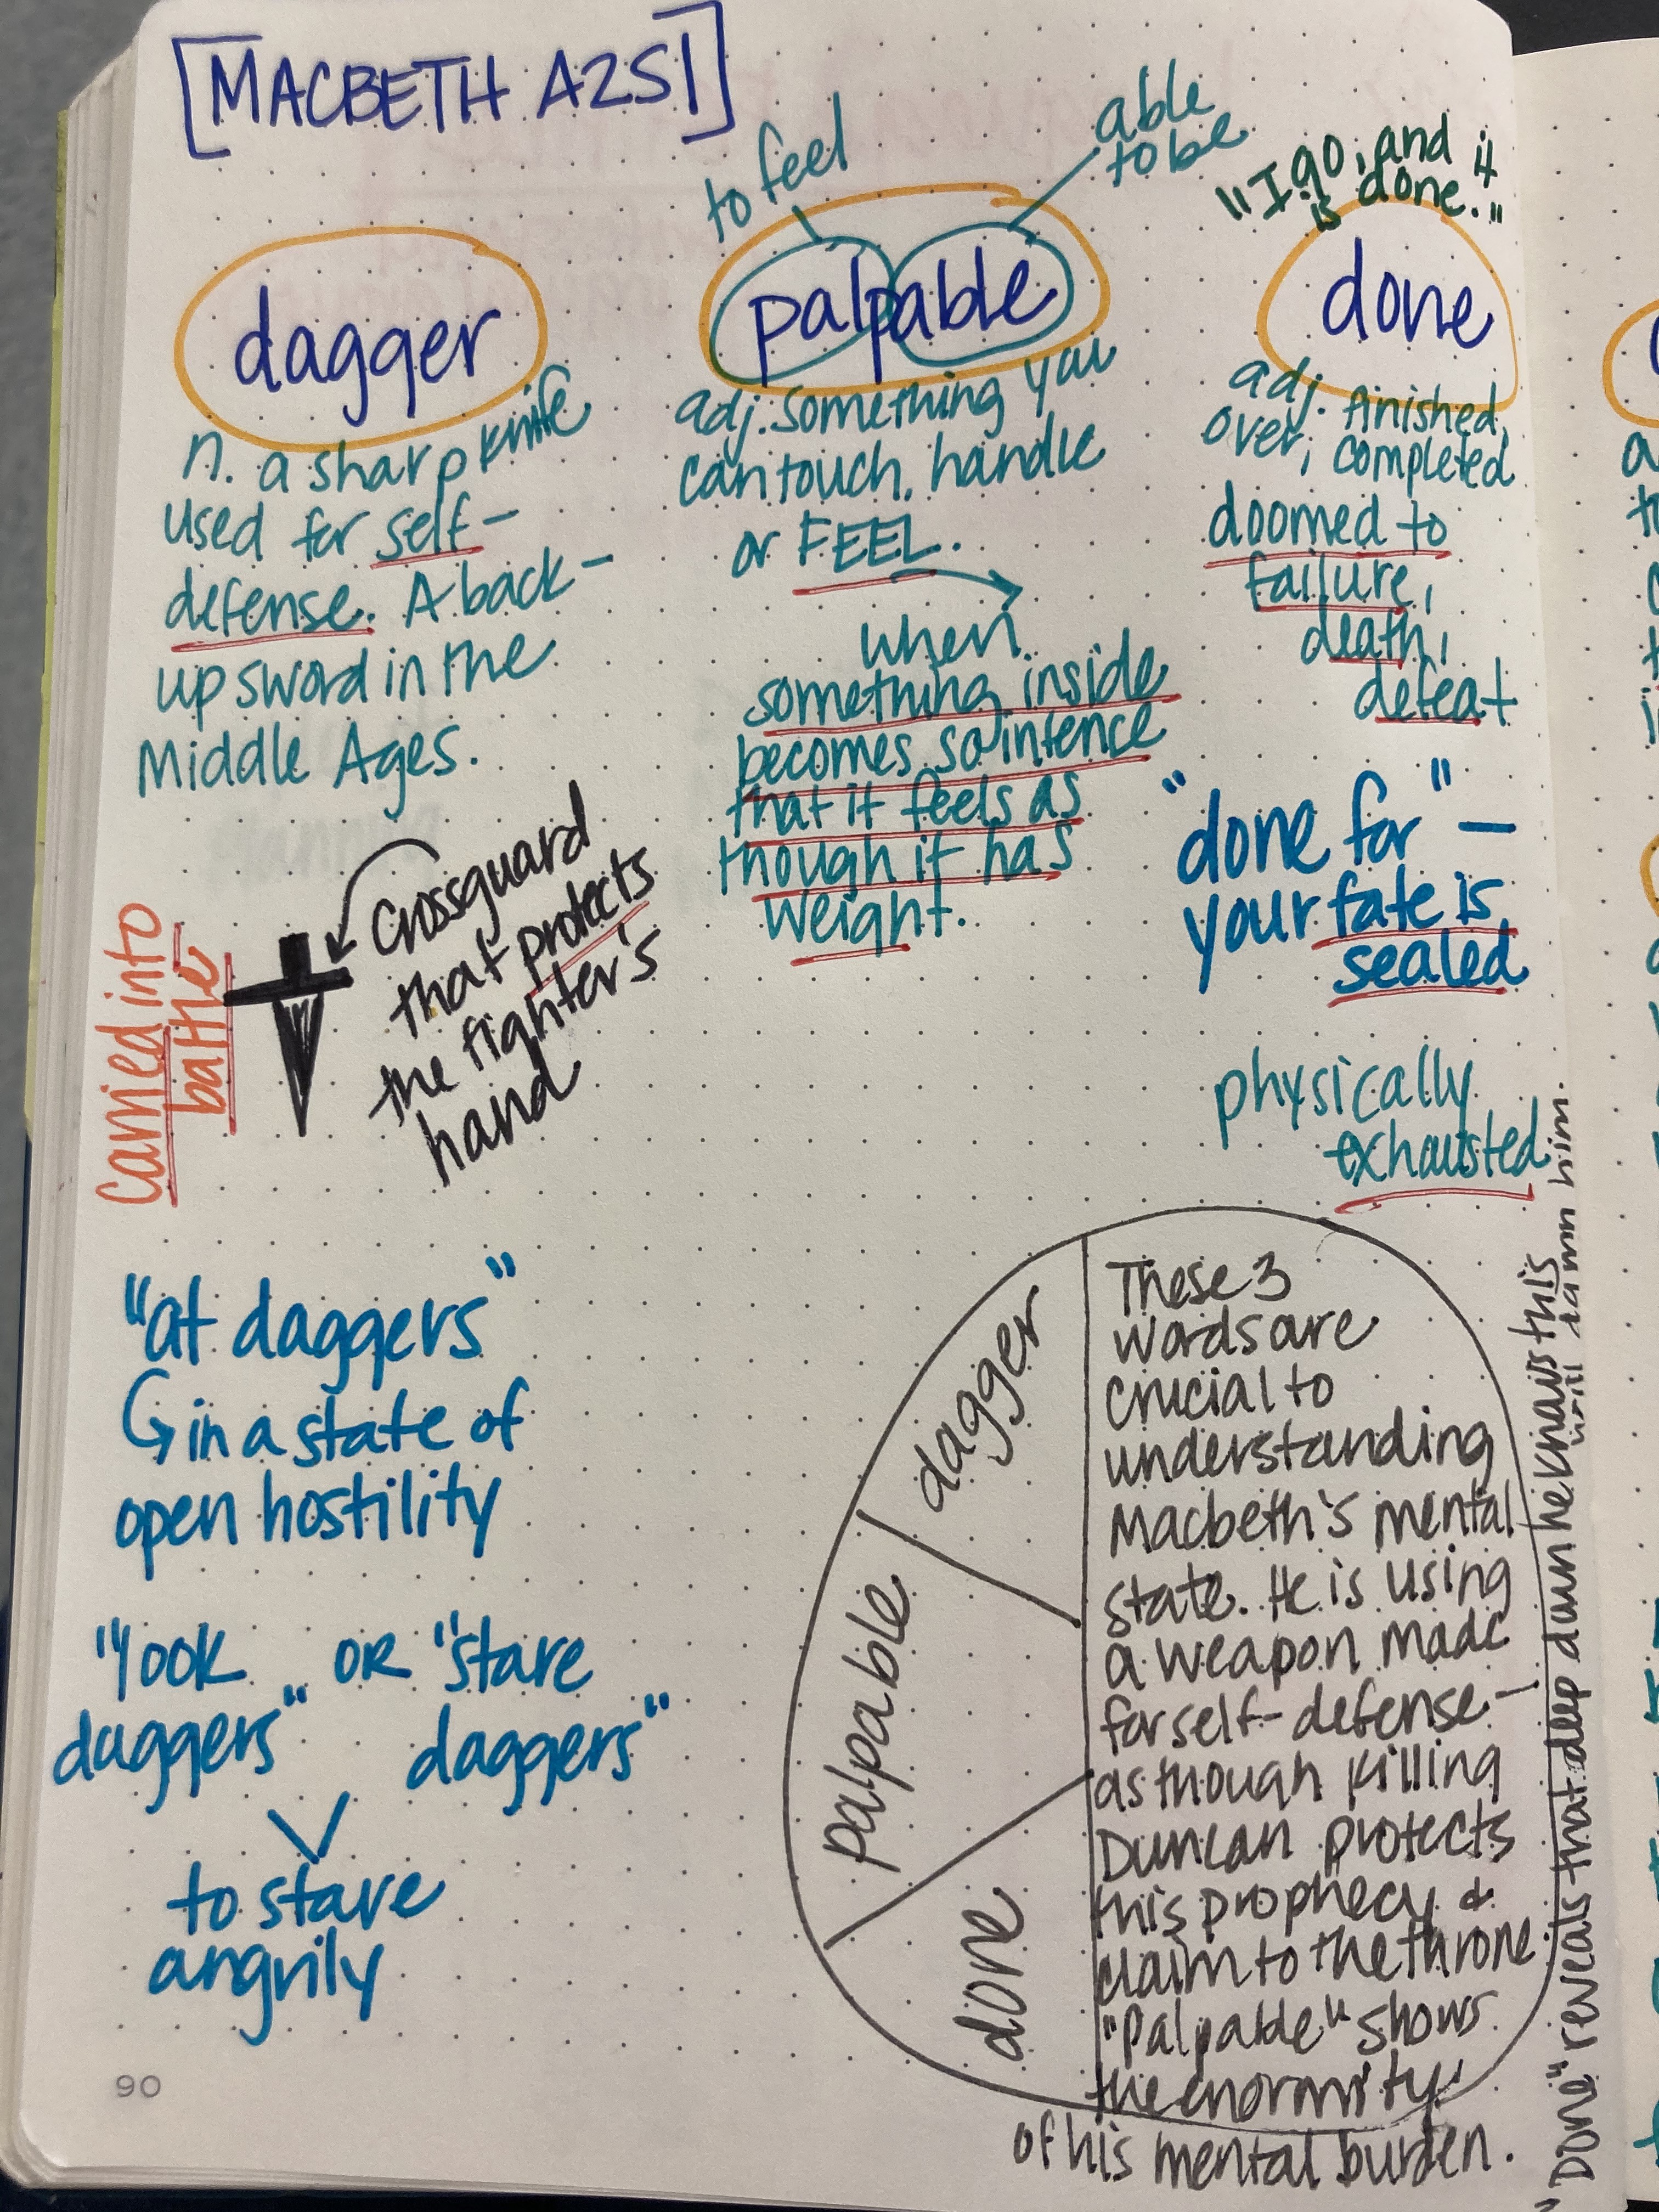 [MACBETH A2S1]
to feel
able
to be
"I go, and it
is done."
dagger
palpable
done
n. a sharp knife
used for self-
defense. A back-
up sword in the
Middle Ages.
adj. something you
can touch, handle
or FEEL.
when
something inside
becomes so intence
that it feels as
though it has
weight.
adj. finished,
over, completed
doomed to
failure,
death,
defeat
"done for" –
your fate is
sealed
physically
exhausted
Carried into
battle
Crossguard
that protects
the fighter's
hand
"at daggers"
in a state of
open hostility
"look
daggers"
OR
"stare
daggers"
to stare
angrily
dagger
palpable
done
These 3
words are
crucial to
understanding
Macbeth's mental
state. He is using
a weapon made
for self-defense –
as though killing
Duncan protects
this prophecy &
claim to the throne.
"Palpable" shows
the enormity
of his mental burden.
"Done" reveals that deep down he knows this
will damn him.
90